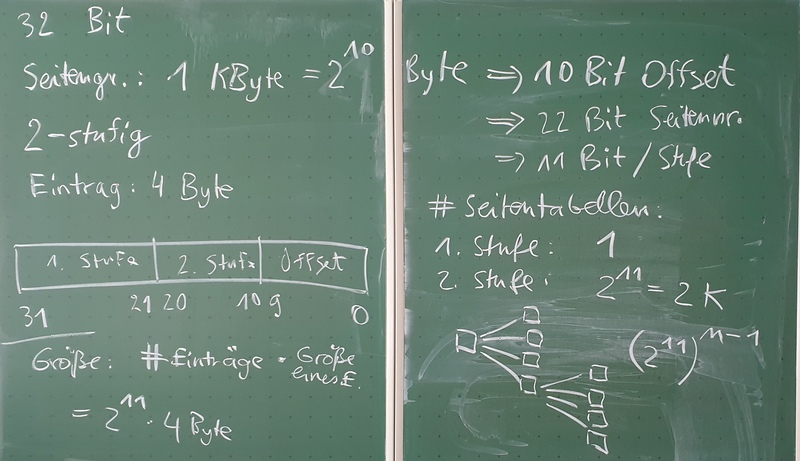 32 Bit
Seitengr.: 1 KByte = 2^10 Byte ⇒ 10 Bit Offset
⇒ 22 Bit Seitennr.
⇒ 11 Bit / Stufe
2-stufig
Eintrag: 4 Byte
1. Stufe 2. Stufe Offset
31 21 20 10 9 0
Größe: # Einträge · Größe eines E.
= 2^11 · 4 Byte
# Seitentabellen:
1. Stufe: 1
2. Stufe: 2^11 = 2 K
(2^11)^n-1